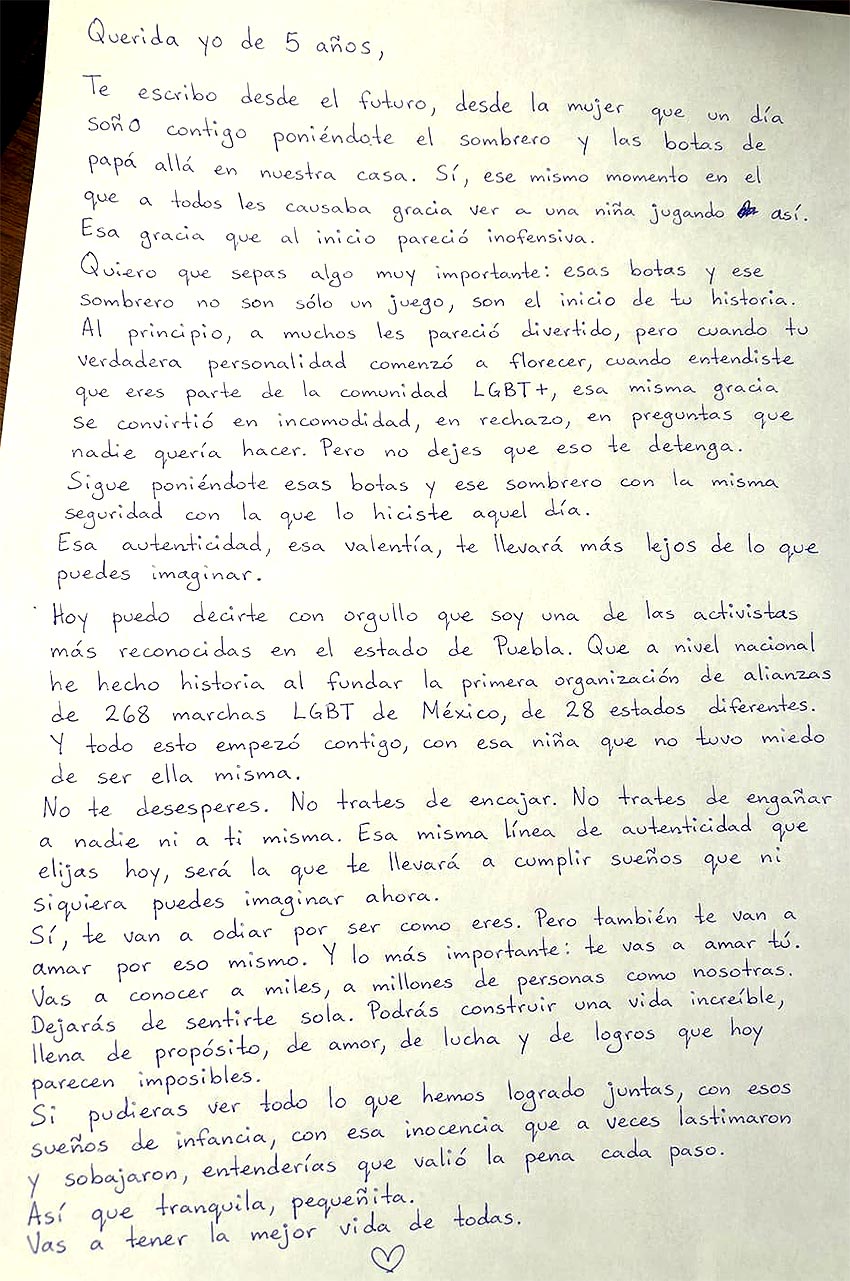 Querida yo de 5 años,
Te escribo desde el futuro, desde la mujer que un día
soñO contigo poniéndote el sombrero y las botas de
papá allá en nuestra casa. Sí, ese mismo momento en el
que a todos les causaba gracia ver a una niña jugando así.
Esa gracia que al inicio pareció inofensiva.
Quiero que sepas algo muy importante: esas botas y ese
sombrero no son sólo un juego, son el inicio de tu historia.
Al principio, a muchos les pareció divertido, pero cuando tu
verdadera personalidad comenzó a florecer, cuando entendiste
que eres parte de la comunidad LGBT+, esa misma gracia
se convirtió en incomodidad, en rechazo, en preguntas que
nadie quería hacer. Pero no dejes que eso te detenga.
Sigue poniéndote esas botas y ese sombrero con la misma
seguridad con la que lo hiciste aquel día.
Esa autenticidad, esa valentía, te llevará más lejos de lo que
puedes imaginar.
Hoy puedo decirte con orgullo que soy una de las activistas
más reconocidas en el estado de Puebla. Que a nivel nacional
he hecho historia al fundar la primera organización de alianzas
de 268 marchas LGBT de México, de 28 estados diferentes.
Y todo esto empezó contigo, con esa niña que no tuvo miedo
de ser ella misma.
No te desesperes. No trates de encajar. No trates de engañar
a nadie ni a ti misma. Esa misma línea de autenticidad que
elijas hoy, será la que te llevará a cumplir sueños que ni
siquiera puedes imaginar ahora.
Sí, te van a odiar por ser como eres. Pero también te van a
amar por eso mismo. Y lo más importante: te vas a amar tú.
Vas a conocer a miles, a millones de personas como nosotras.
Dejarás de sentirte sola. Podrás construir una vida increíble,
llena de propósito, de amor, de lucha y de logros que hoy
parecen imposibles.
Si pudieras ver todo lo que hemos logrado juntas, con esos
sueños de infancia, con esa inocencia que a veces lastimaron
y sobajaron, entenderías que valió la pena cada paso.
Así que tranquila, pequeñita.
Vas a tener la mejor vida de todas.